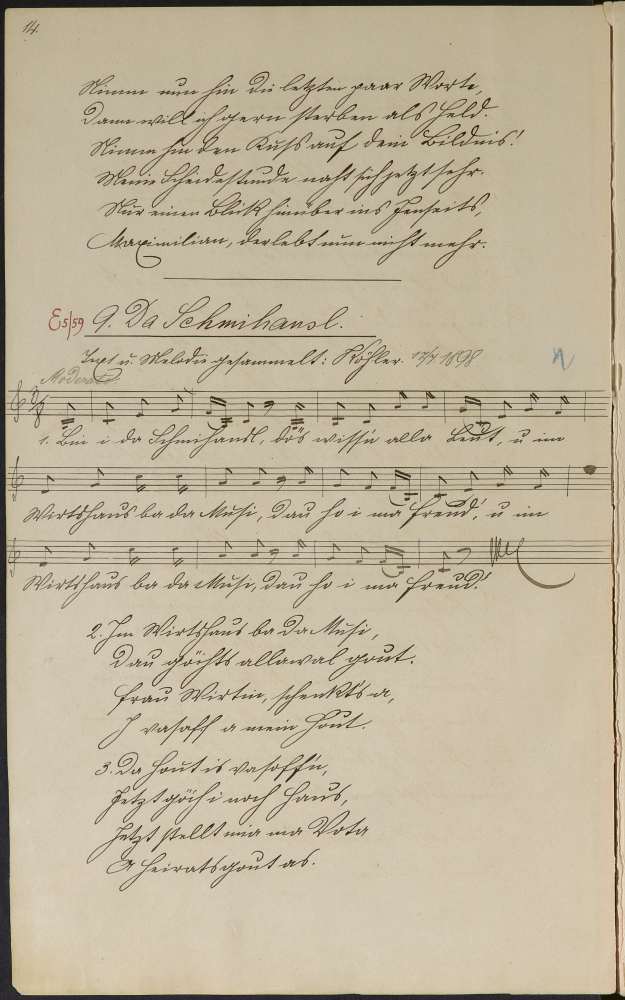 14.
Nimm nun hin die letzten paar Worte,
Dann will ich gern sterben als Held.
Nimm hin den Kuss auf dein Bildnis!
Meine Scheidestunde naht sich jetzt sehr.
Nur einen Blick hinüber ins Jenseits,
Maximilian, der lebt nun nicht mehr.
E5/59 9. Da Schmihansl.
Text u. Melodie gesammelt: Köhler. 17/7 1898
Moderato.
1. Bin i da Schmihansl, dös wissn alla Leut, u im
Wirtshaus ba da Musi, dau ho i ma Freud', u im
Wirtshaus ba da Musi, dau ho i ma Freud'!
2. Im Wirtshaus ba da Musi,
Dau göihts allawal gout.
Frau Wirtin, schenkts a,
I vasaff a mein Hout.
3. Da Hout is vasoff'n,
Jetzt göih i noch Haus,
Jetzt stellt mia ma Vota
A Heiratsgout as.